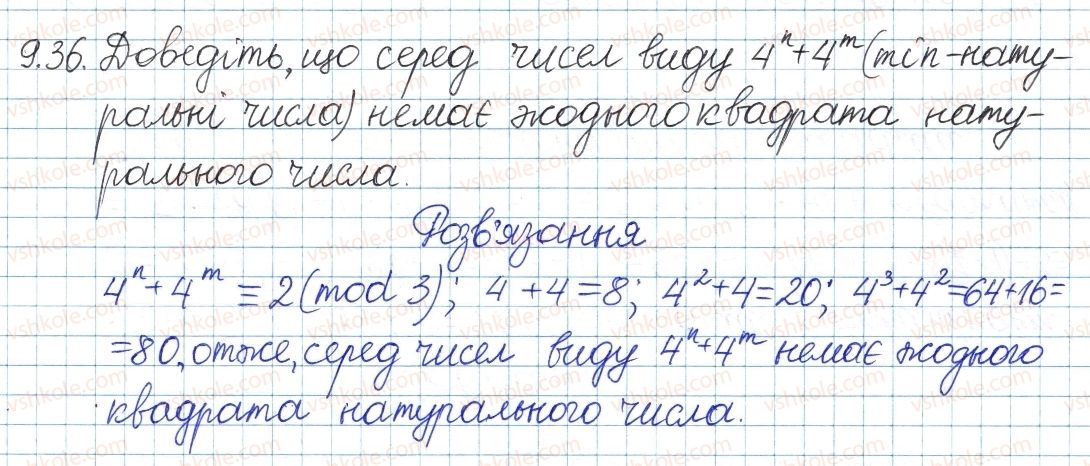 9.36. Доведіть, що серед чисел виду 4ⁿ+4ᵐ (m і n - нату-
ральні числа) немає жодного квадрата нату-
рального числа.
Розв'язання
4ⁿ+4ᵐ ≡ 2 (mod 3); 4+4=8; 4²+4=20; 4³+4²=64+16=
=80, отже, серед чисел виду 4ⁿ+4ᵐ немає жодного
квадрата натурального числа.